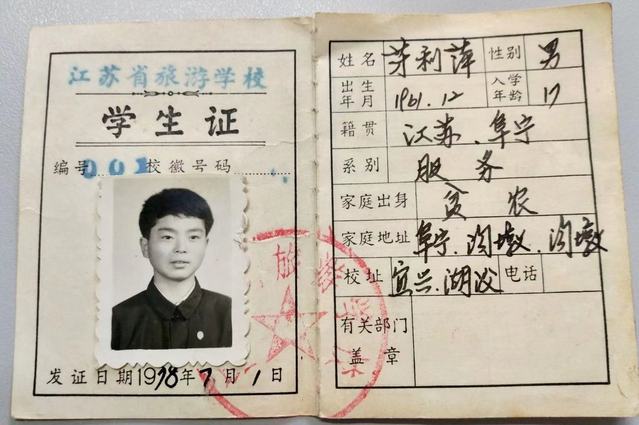 江苏省旅游学校
学生证
编号 001 校徽号码
发证日期1978年7月1日
姓名 利萍 性别 男
出生年月 1961.12 入学年龄 17
籍贯 江苏、阜宁
系别 服务
家庭出身 贫农
家庭地址 阜宁、沟墩、沟墩
校址 宜兴.湖㳇 电话
有关部门
盖章